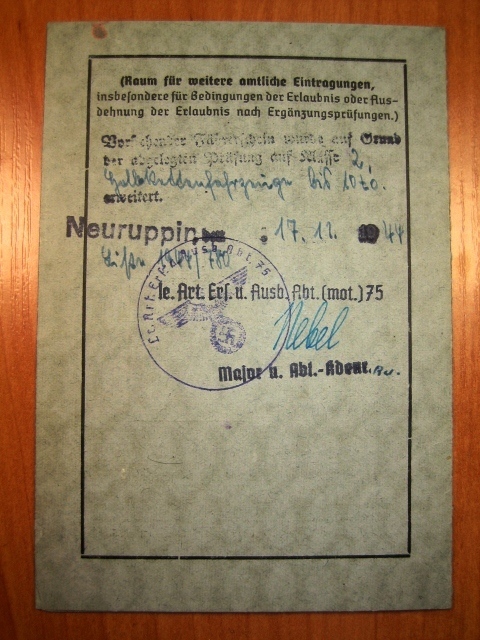 (Raum für weitere amtliche Eintragungen,
insbesondere für Bedingungen der Erlaubnis oder Aus-
dehnung der Erlaubnis nach Ergänzungsprüfungen.)
Vorstehender Führerschein wurde auf Grund
der abgelegten Prüfung auf Klasse 2,
Halbkettenfahrzeuge bis 10to.
erweitert.
Neuruppin, den 17.12. 1944
Liste 1944/780
le. Art. Ers. u. Ausb. Abt. (mot.) 75
Nebel
Major u. Abt.-Kdeur.